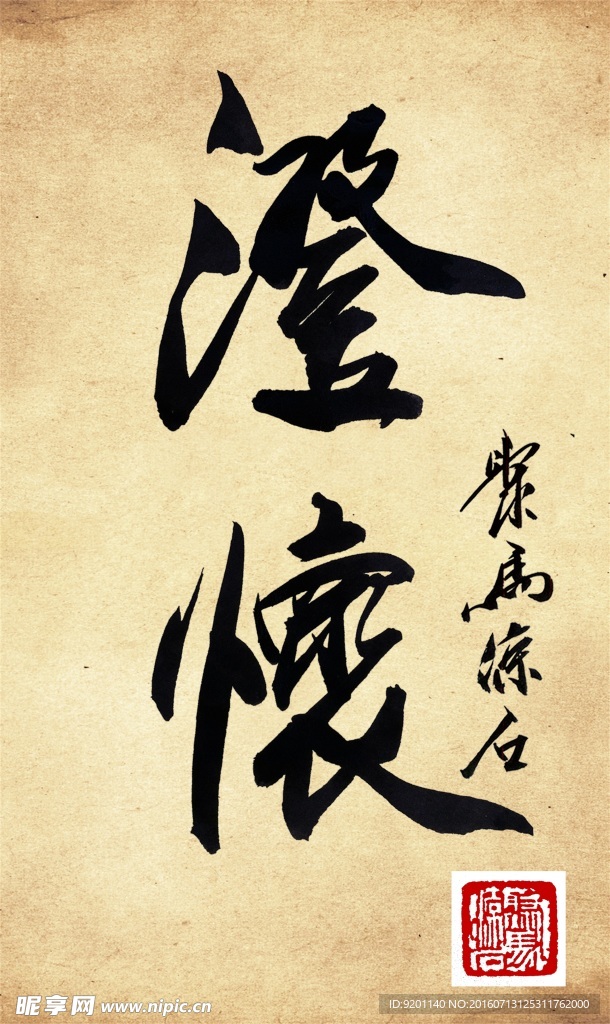 澄懷
聚馬涼石
昵享网 www.nipic.cn
ID:9201140 NO:20160713125311762000